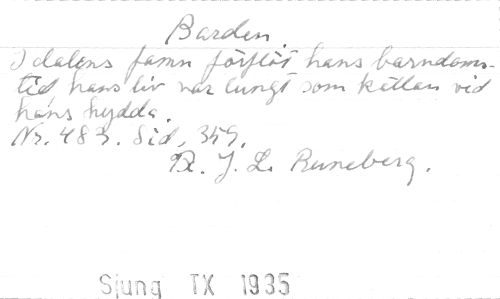 Barden.
I dalens famn förflöt hans barndoms-
tid, hans liv var lungt som källan vid
hans hydda.
Nr. 483. Sid, 359.
R. J. L. Runeberg.
Sjung TX 1935